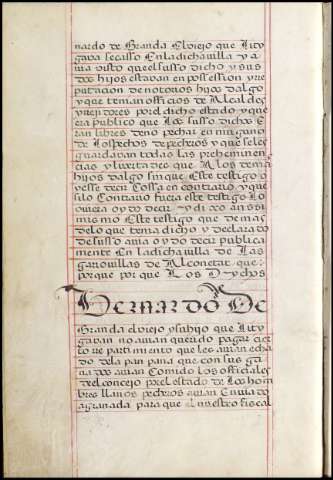 nardo de Granda el viejo que lity
gava se caso En la dicha villa y a
uia visto que el suso dicho y sus
dos hijos estavan en possession y re
putacion de notorios hijos dalgo
y que tenian officios de Alcaldes
y regidores por el dicho estado y que
era publico que los suso dichos E
ran libres de no pechar en ninguno
de los pechos de pecheros y que se les
guardavan todas las preheminen
cias y livertades que A los demas
hijos dalgo sin que Este testigo o
yesse decir Cossa en contrario y que
si lo Contrario fuera este testigo lo
oviera oydo decir y dixo ansi
mismo Este testigo que demas
de lo que tenia dicho y declarado
de suso avia oydo decir publica
mente En la dicha villa de las
garrovillas de Alconetar que
porque por que los dichos
Bernardo De
Granda el viejo y su hijo que lity
gavan no avian querido pagar cier
to repartimiento que les avian echa
do de la pan pana que con sus ga
nados avian Comido los officiales
del concejo por el estado de los hom
bres llanos pecheros avian Enviado
a granada para que el nuestro fiscal